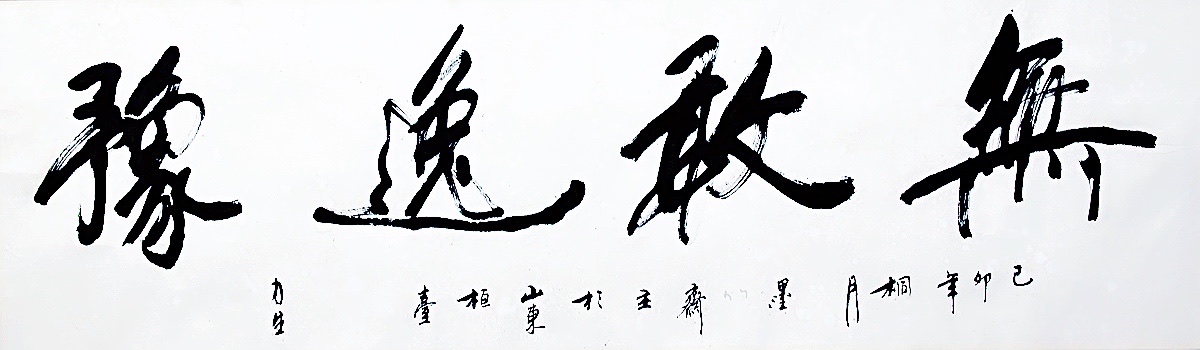 無敢逸豫
己卯年桐月墨齋主於山東桓臺
力生